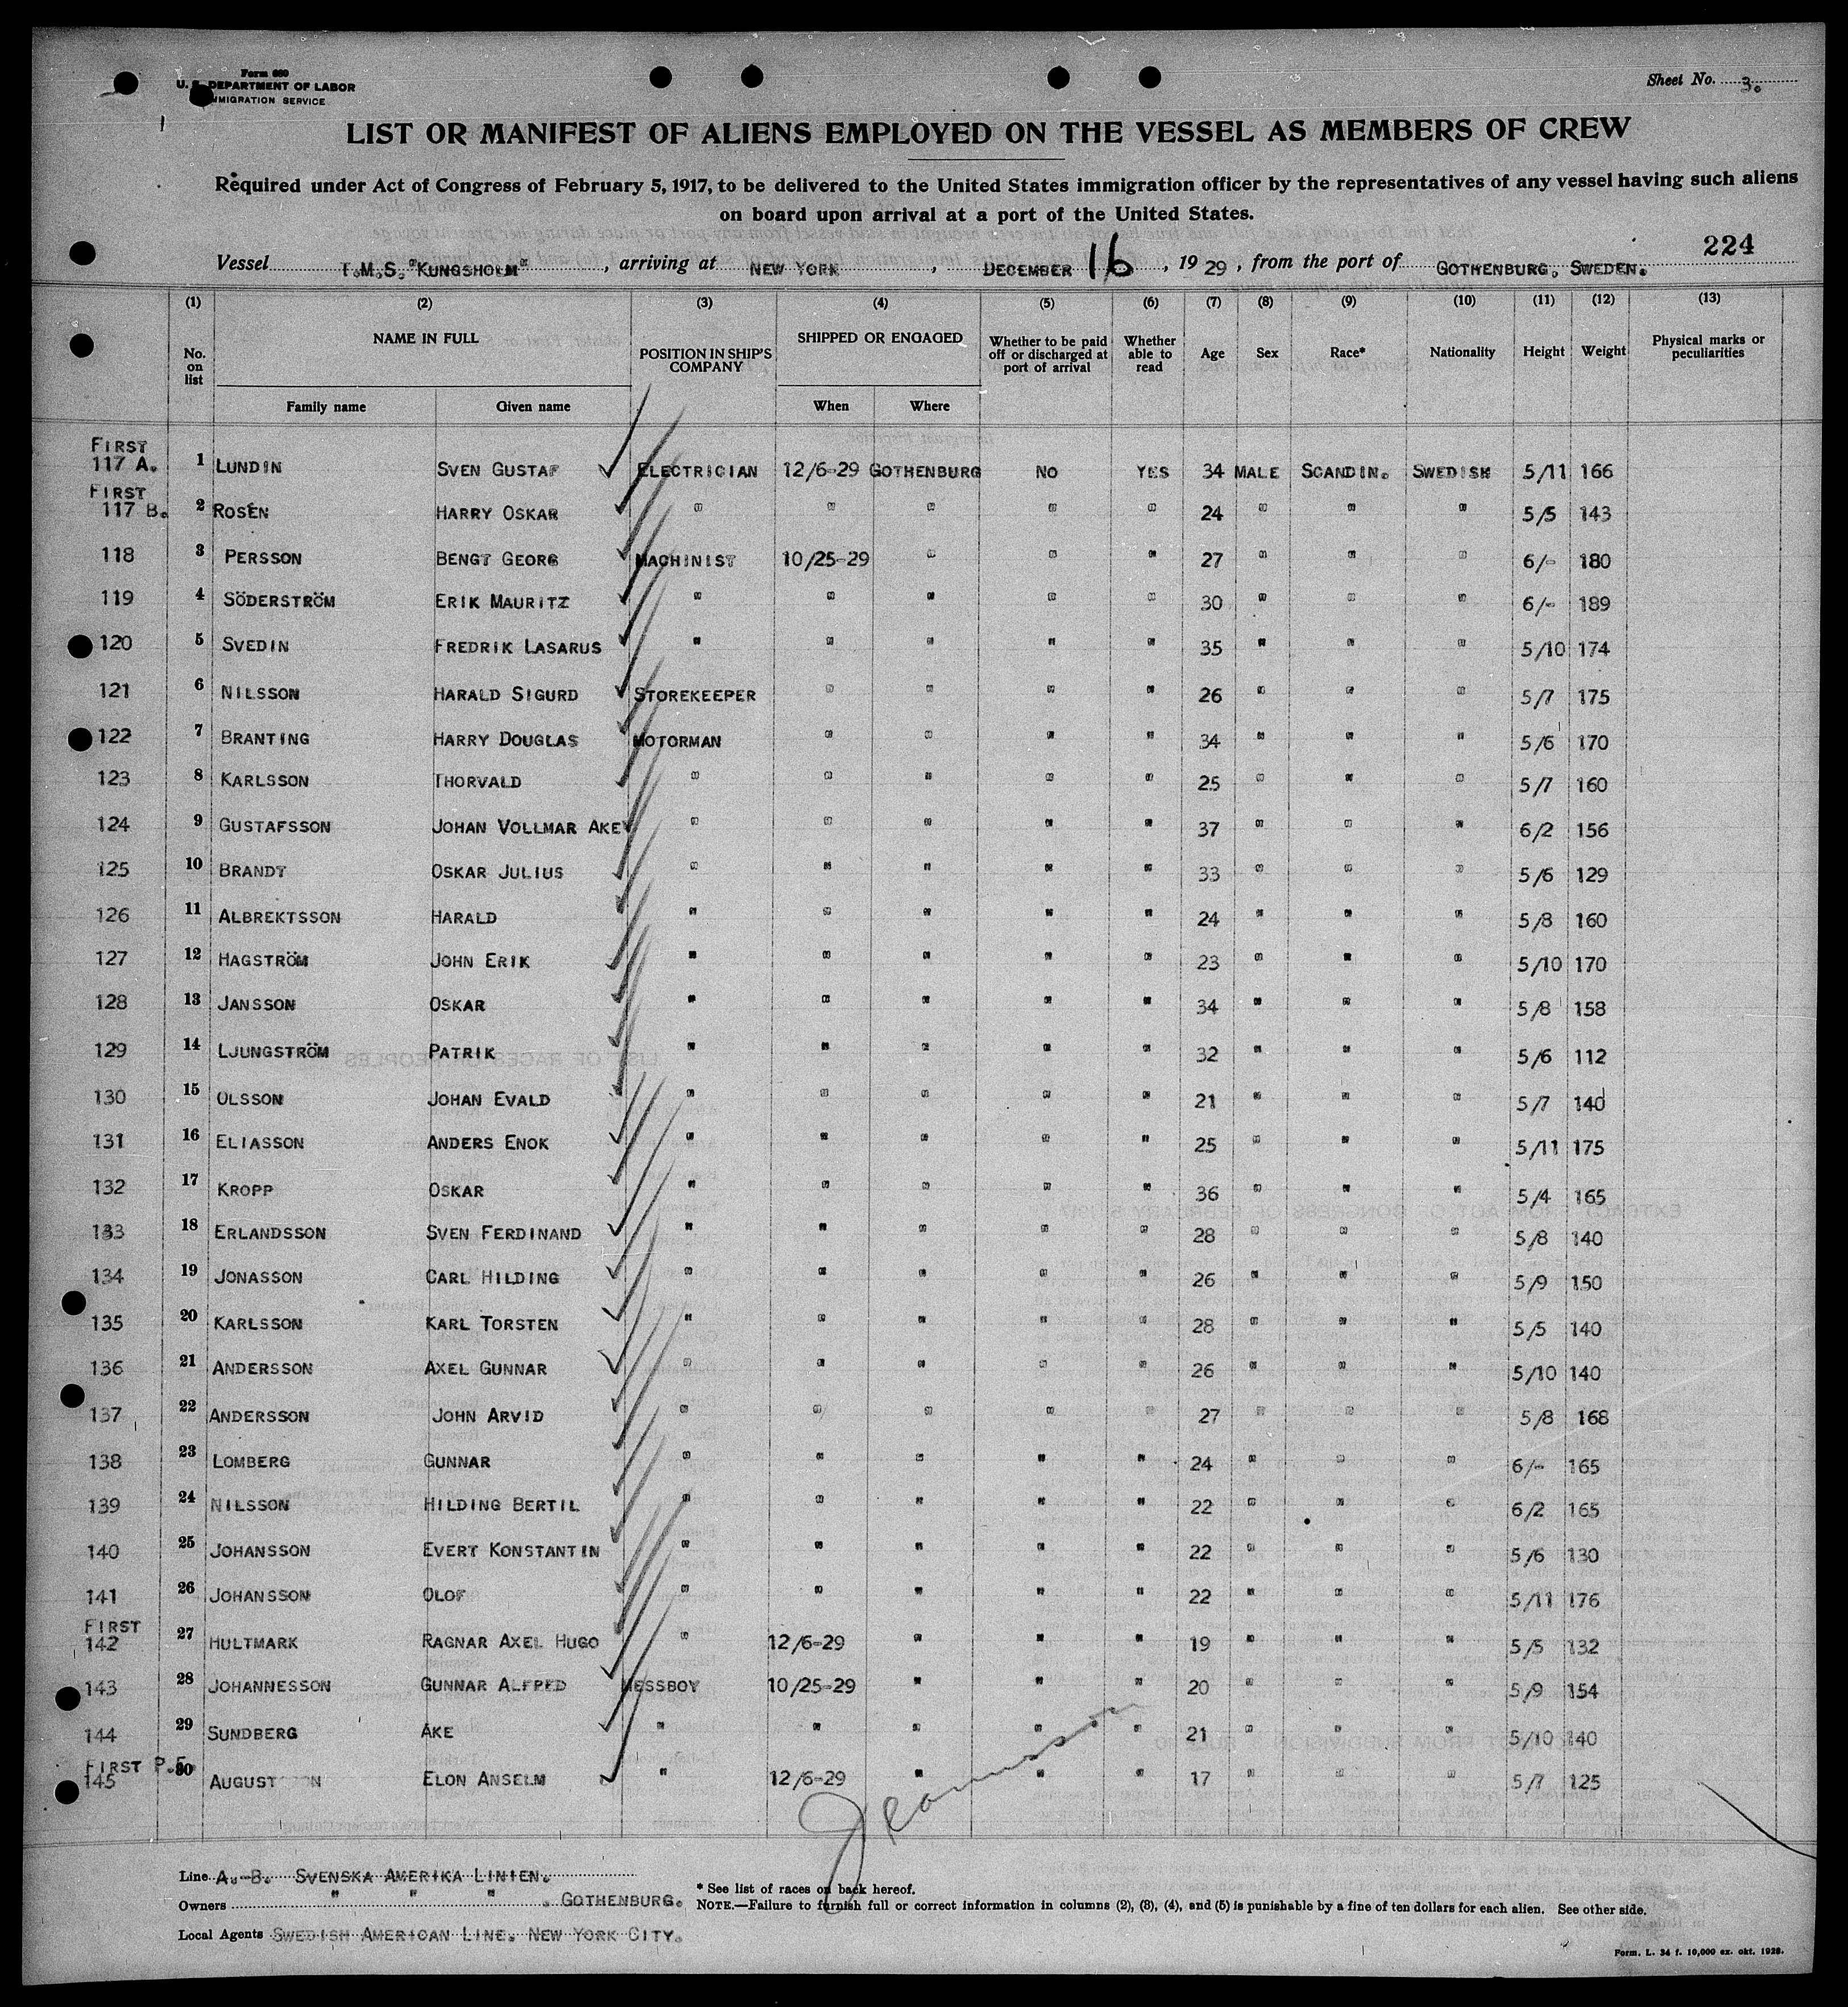 Form 680
U. S. DEPARTMENT OF LABOR
IMMIGRATION SERVICE
Sheet No. 3.
LIST OR MANIFEST OF ALIENS EMPLOYED ON THE VESSEL AS MEMBERS OF CREW
Required under Act of Congress of February 5, 1917, to be delivered to the United States immigration officer by the representatives of any vessel having such aliens
on board upon arrival at a port of the United States.
224
Vessel T.M.S. "KUNGSHOLM", arriving at NEW YORK, DECEMBER 16, 1929, from the port of GOTHENBURG, SWEDEN.
(1) (2) (3) (4) (5) (6) (7) (8) (9) (10) (11) (12) (13)
No. on list NAME IN FULL Family name Given name POSITION IN SHIP'S COMPANY SHIPPED OR ENGAGED When Where Whether to be paid off or discharged at port of arrival Whether able to read Age Sex Race* Nationality Height Weight Physical marks or peculiarities
FIRST 117 A. 1 LUNDIN SVEN GUSTAF ELECTRICIAN 12/6-29 GOTHENBURG NO YES 34 MALE SCANDIN. SWEDISH 5/11 166
FIRST 117 B. 2 ROSÉN HARRY OSKAR " " " " " 24 " " " 5/5 143
118 3 PERSSON BENGT GEORG MACHINIST 10/25-29 " " " 27 " " " 6/- 180
119 4 SÖDERSTRÖM ERIK MAURITZ " " " " " 30 " " " 6/- 189
120 5 SVEDIN FREDRIK LASARUS " " " " " 35 " " " 5/10 174
121 6 NILSSON HARALD SIGURD STOREKEEPER " " " " 26 " " " 5/7 175
122 7 BRANTING HARRY DOUGLAS MOTORMAN " " " " 34 " " " 5/6 170
123 8 KARLSSON THORVALD " " " " " 25 " " " 5/7 160
124 9 GUSTAFSSON JOHAN VOLLMAR AKE " " " " " 37 " " " 6/2 156
125 10 BRANDT OSKAR JULIUS " " " " " 33 " " " 5/6 129
126 11 ALBREKTSSON HARALD " " " " " 24 " " " 5/8 160
127 12 HAGSTRÖM JOHN ERIK " " " " " 23 " " " 5/10 170
128 13 JANSSON OSKAR " " " " " 34 " " " 5/8 158
129 14 LJUNGSTRÖM PATRIK " " " " " 32 " " " 5/6 112
130 15 OLSSON JOHAN EVALD " " " " " 21 " " " 5/7 140
131 16 ELIASSON ANDERS ENOK " " " " " 25 " " " 5/11 175
132 17 KROPP OSKAR " " " " " 36 " " " 5/4 165
133 18 ERLANDSSON SVEN FERDINAND " " " " " 28 " " " 5/8 140
134 19 JONASSON CARL HILDING " " " " " 26 " " " 5/9 150
135 20 KARLSSON KARL TORSTEN " " " " " 28 " " " 5/5 140
136 21 ANDERSSON AXEL GUNNAR " " " " " 26 " " " 5/10 140
137 22 ANDERSSON JOHN ARVID " " " " " 27 " " " 5/8 168
138 23 LOMBERG GUNNAR " " " " " 24 " " " 6/- 165
139 24 NILSSON HILDING BERTIL " " " " " 22 " " " 6/2 165
140 25 JOHANSSON EVERT KONSTANTIN " " " " " 22 " " " 5/6 130
141 26 JOHANSSON OLOF " " " " " 22 " " " 5/11 176
FIRST 142 27 HULTMARK RAGNAR AXEL HUGO " 12/6-29 " " " 19 " " " 5/5 132
143 28 JOHANNESSON GUNNAR ALFRED MESSBOY 10/25-29 " " " 20 " " " 5/9 154
144 29 SUNDBERG ÅKE " " " " " 21 " " " 5/10 140
FIRST P.S. 145 30 AUGUST N ELON ANSELM " 12/6-29 " " " 17 " " " 5/7 125
Line A.-B. SVENSKA AMERIKA LINIEN.
Owners " " " . GOTHENBURG.
Local Agents SWEDISH AMERICAN LINE. NEW YORK CITY.
* See list of races on back hereof.
NOTE.—Failure to furnish full or correct information in columns (2), (3), (4), and (5) is punishable by a fine of ten dollars for each alien. See other side.
Form. L. 34 f. 10,000 ex. okt. 1928.